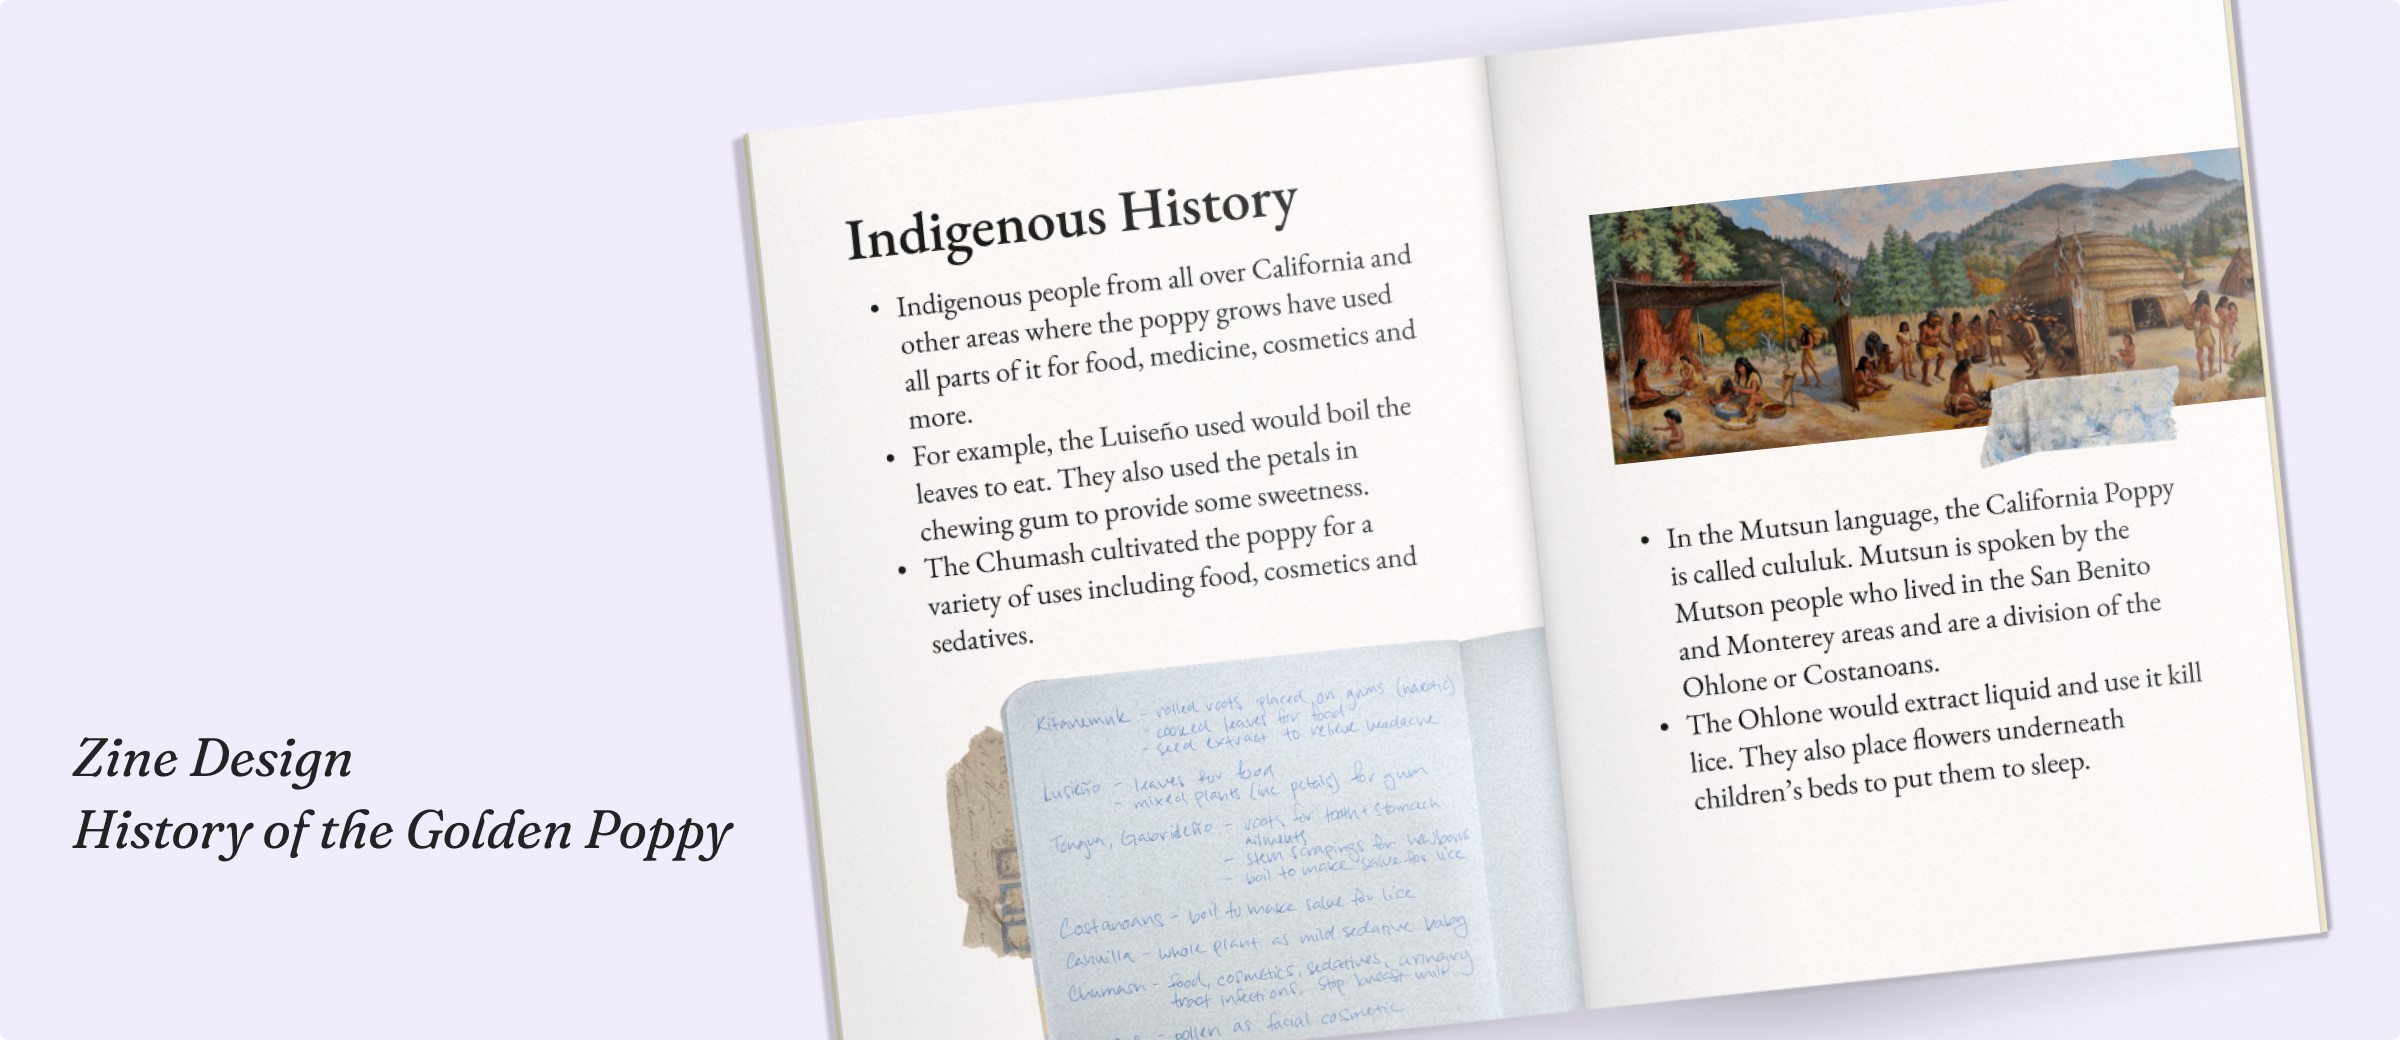 Zine Design
History of the Golden Poppy
Indigenous History
• Indigenous people from all over California and
other areas where the poppy grows have used
all parts of it for food, medicine, cosmetics and
more.
• For example, the Luiseño used would boil the
leaves to eat. They also used the petals in
chewing gum to provide some sweetness.
• The Chumash cultivated the poppy for a
variety of uses including food, cosmetics and
sedatives.
Kitanemuk - rolled roots placed on gums
- cooked leaves for food
- seed extract to relieve headache
Lusieño - leaves for food
- mixed plants (inc petals) for gum
Tongva, - roots for tooth + stomach
ailments
- stem scrapings for newborns
- boil to make salve for lice
Costanoans - boil to make salve for lice
Cahuilla - whole plant as mild sedative baby
Chumash - food, cosmetics, sedatives, urinary
tract infections, stop breast milk
- pollen as facial cosmetic
• In the Mutsun language, the California Poppy
is called cululuk. Mutsun is spoken by the
Mutson people who lived in the San Benito
and Monterey areas and are a division of the
Ohlone or Costanoans.
• The Ohlone would extract liquid and use it kill
lice. They also place flowers underneath
children’s beds to put them to sleep.